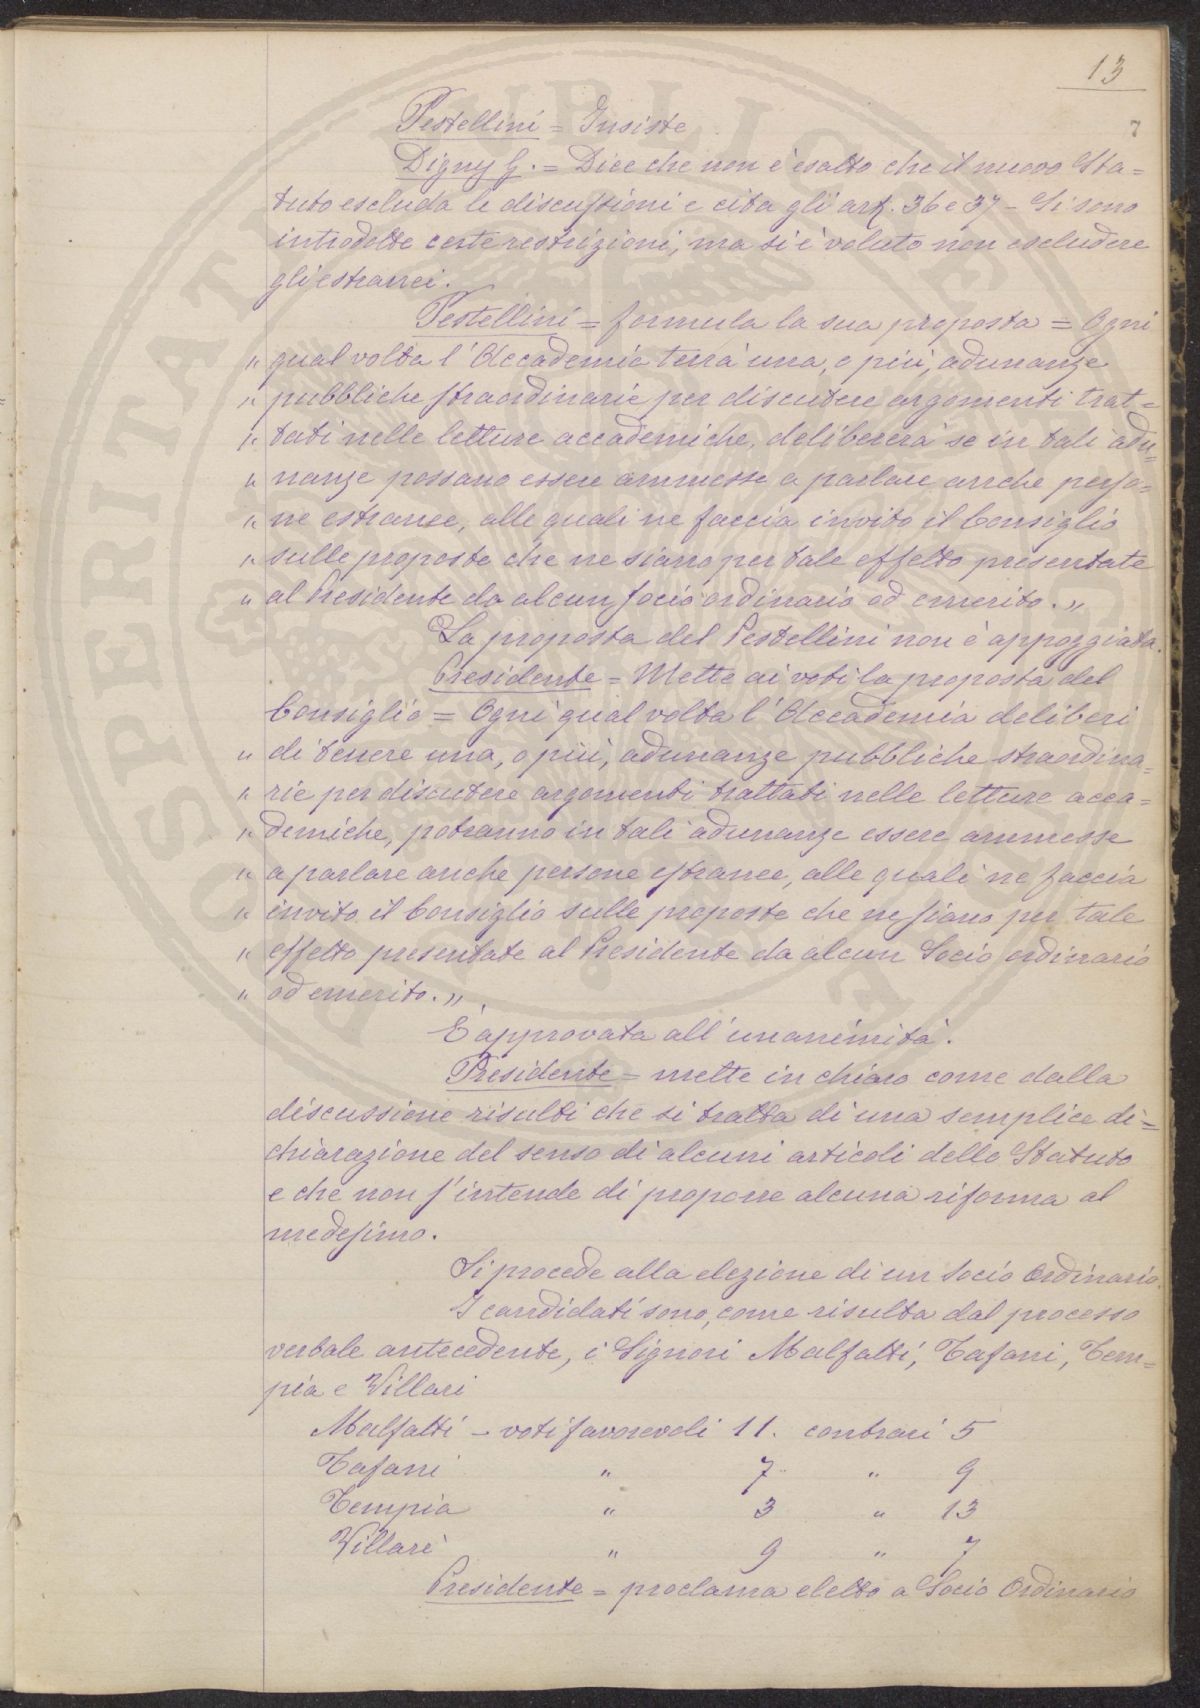 13
7
Pestellini = Insiste
Digny G. = Dice che non è esatto che il nuovo Sta=
tuto escluda le discussioni e cita gli art. 36 e 37 – Si sono
introdotte certe restrizioni, ma si è voluto non escludere
gli estranei.
Pestellini = formula la sua proposta = Ogni
" qual volta l'Accademia terrà una, o più, adunanze
" pubbliche straordinarie per discutere argomenti trat=
" tati nelle letture accademiche, delibererà se in tali adu=
" nanze possano essere ammesse a parlare anche perso=
" ne estranee, alle quali ne faccia invito il Consiglio
" sulle proposte che ne siano per tale effetto presentate
" al Presidente da alcun socio ordinario od emerito. "
La proposta del Pestellini non è appoggiata.
Presidente = Mette ai voti la proposta del
Consiglio = Ogni qual volta l'Accademia deliberi
" di tenere una, o più, adunanze pubbliche straordina=
" rie per discutere argomenti trattati nelle letture acca=
" demiche, potranno in tali adunanze essere ammesse
" a parlare anche persone estranee, alle quali ne faccia
" invito il Consiglio sulle proposte che ne siano per tale
" effetto presentate al Presidente da alcun Socio ordinario
" od emerito. "
È approvata all'unanimità.
Presidente = mette in chiaro come dalla
discussione risulti che si tratta di una semplice di=
chiarazione del senso di alcuni articoli dello Statuto
e che non s'intende di proporre alcuna riforma al
medesimo.
Si procede alla elezione di un Socio Ordinario.
I candidati sono, come risulta dal processo
verbale antecedente, i Signori Malfatti, Tafani, Tem=
pia e Villari
Malfatti – voti favorevoli 11. contrari 5
Tafani " 7 " 9
Tempia " 3 " 13
Villari " 9 " 7
Presidente = proclama eletto a Socio Ordinario